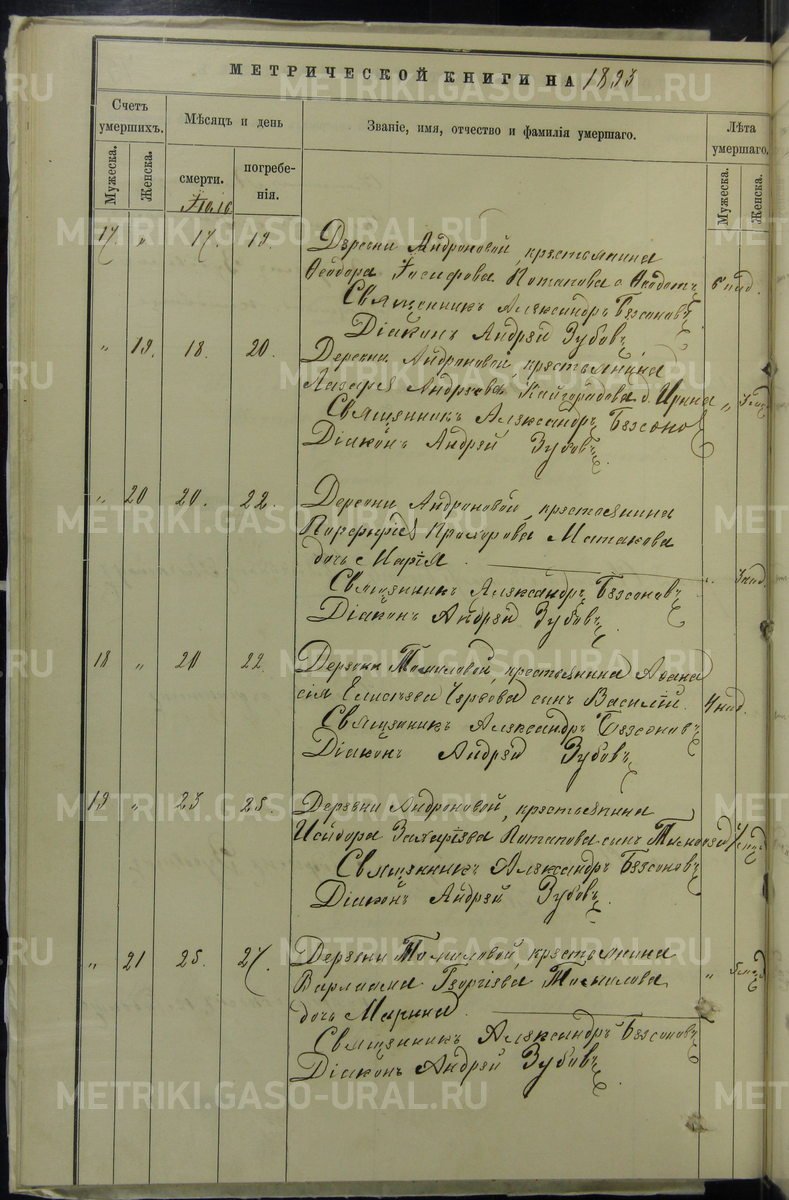 МЕТРИЧЕСКОЙ КНИГИ НА 1893
Счетъ умершихъ.
Мѣсяцъ и день
Званіе, имя, отчество и фамилія умершаго.
Лѣта умершаго.
Мужеска.
Женска.
смерти.
погребенія.
Мужеска.
Женска.
17. " 17. 19. Деревни Андроновой, крестьянина
Ѳеодора Іосифова Потапова с. Ѳеодотъ 6 нед.
Священникъ Александръ Безсоновъ
Діаконъ Андрей Зубовъ
" 19. 18. 20. Деревни Андроновой, крестьянина
Лазаря Андреева Кайгородова д. Ирина "
Священникъ Александръ Безсоновъ
Діаконъ Андрей Зубовъ
" 20 20. 22. Деревни Андроновой, крестьянина
Порфирія Прохорова Матакова
дочь Марія "
Священникъ Александръ Безсоновъ
Діаконъ Андрей Зубовъ.
18 " 20 22. Деревни Томиловой, крестьянина Аѳана
сія Елисѣева сынъ Василій. 4 нед.
Священникъ Александръ Безсоновъ
Діаконъ Андрей Зубовъ
19 " 23 25. Деревни Андроновой, крестьянина
Исидора Захаріева Потапова сынъ Тимоѳей
Священникъ Александръ Безсоновъ
Діаконъ Андрей Зубовъ.
" 21 25. 27. Деревни Томиловой, крестьянина
Варлаама Георгіева Томилова "
дочь Марина
Священникъ Александръ Безсоновъ
Діаконъ Андрей Зубовъ.
METRIKI.GASO-URAL.RU